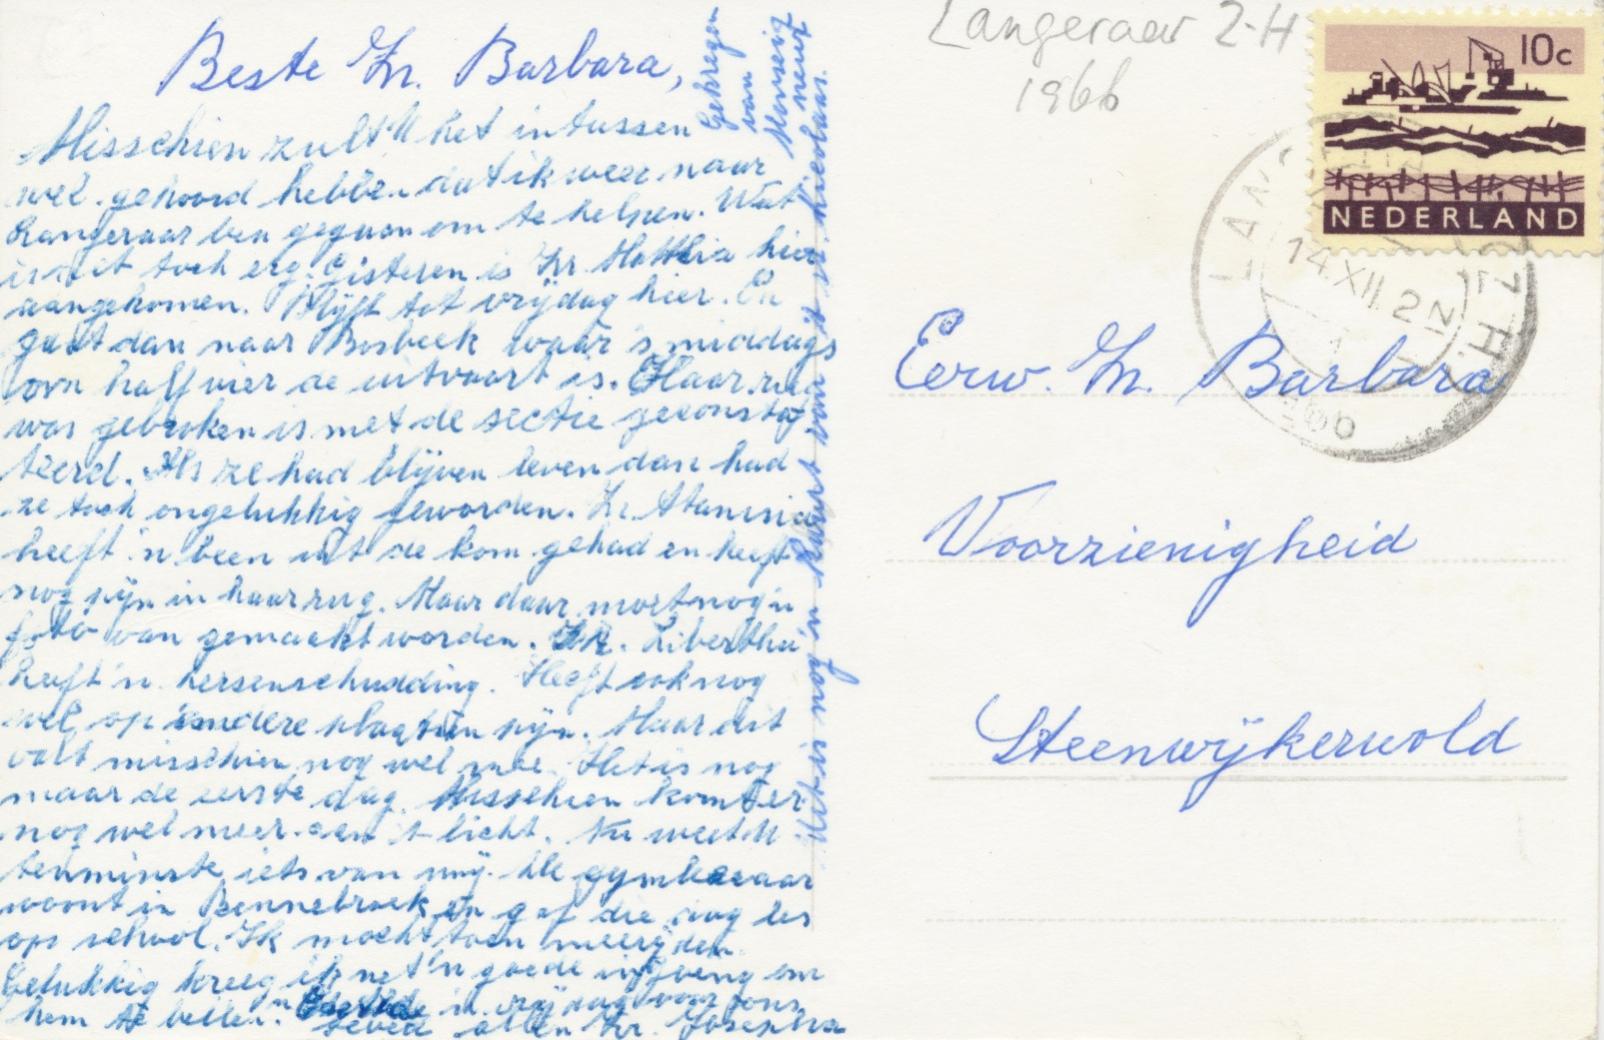 Beste Zr. Barbara,
Misschien zult U het intussen
wel gehoord hebben dat ik weer naar
Langeraar ben gegaan om te helpen. Wat
is dit toch erg. Gisteren is Zr. Matthia hier
aangekomen. Blijft tot vrijdag hier. En
gaat dan naar Bosbeek waar 's middags
om half vier de uitvaart is. Haar rug
was gebroken is met de sectie geconsta
teerd. Als ze had blijven leven dan had
ze toch ongelukkig geworden. Zr.
heeft 'n been uit de kom gehad en heeft
nog pijn in haar rug. Maar daar moet nog 'n
foto van gemaakt worden. Zr. Libertha
heeft 'n hersenschudding. Heeft ook nog
wel op andere plaatsen pijn. Maar dit
valt misschien nog wel mee. Het is nog
maar de eerste dag. Misschien komt er
nog wel meer aan 't licht. Nu weet U
tenminste iets van mij. De gymleraar
woont in Bennebroek en gaf die dag les
op school. Ik mocht toen meerijden.
Gelukkig kreeg ik net 'n goede ingeving om
hem te bellen. 'n in vrijdag voor ons
allen Zr. Josepha
Het is nog 'n kaart van st. Nicolaas.
Gekregen
van
Menseig
neur
Langeraar Z-H
1966
10c
NEDERLAND
14.XII.2N
1966
Eerw. Zr. Barbara
Voorzienigheid
Steenwijkerwold